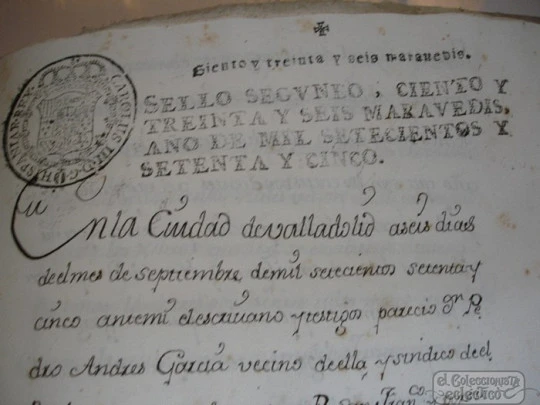 Siento y treinta y seis marauedis.
SELLO SEGVNDO, CIENTO Y
TREINTA Y SEIS MARAVEDIS,
AÑO DE MIL SETECIENTOS Y
SETENTA Y CINCO.
CAROLUS III D G HISPANIAR REX
En la Ciudad de valladolid a seis dias
de el mes de septiembre de mil setecientos setenta y
cinco ante mi el escriuano y testigos parecio Dn Pe
dro Andres Garcia vecino de ella, y sindico de el
el Coleccionista
ecléctico